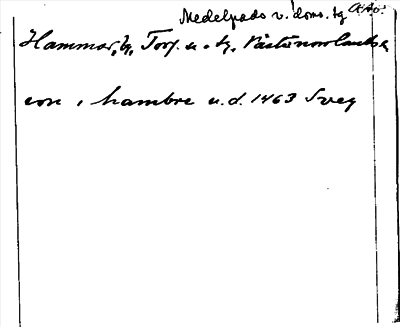 Medelpads v. doms. tg
Hammar, by, Torp s:n o. tg, Västernorrlands l.
con, hambre u.d. 1463 Sveg